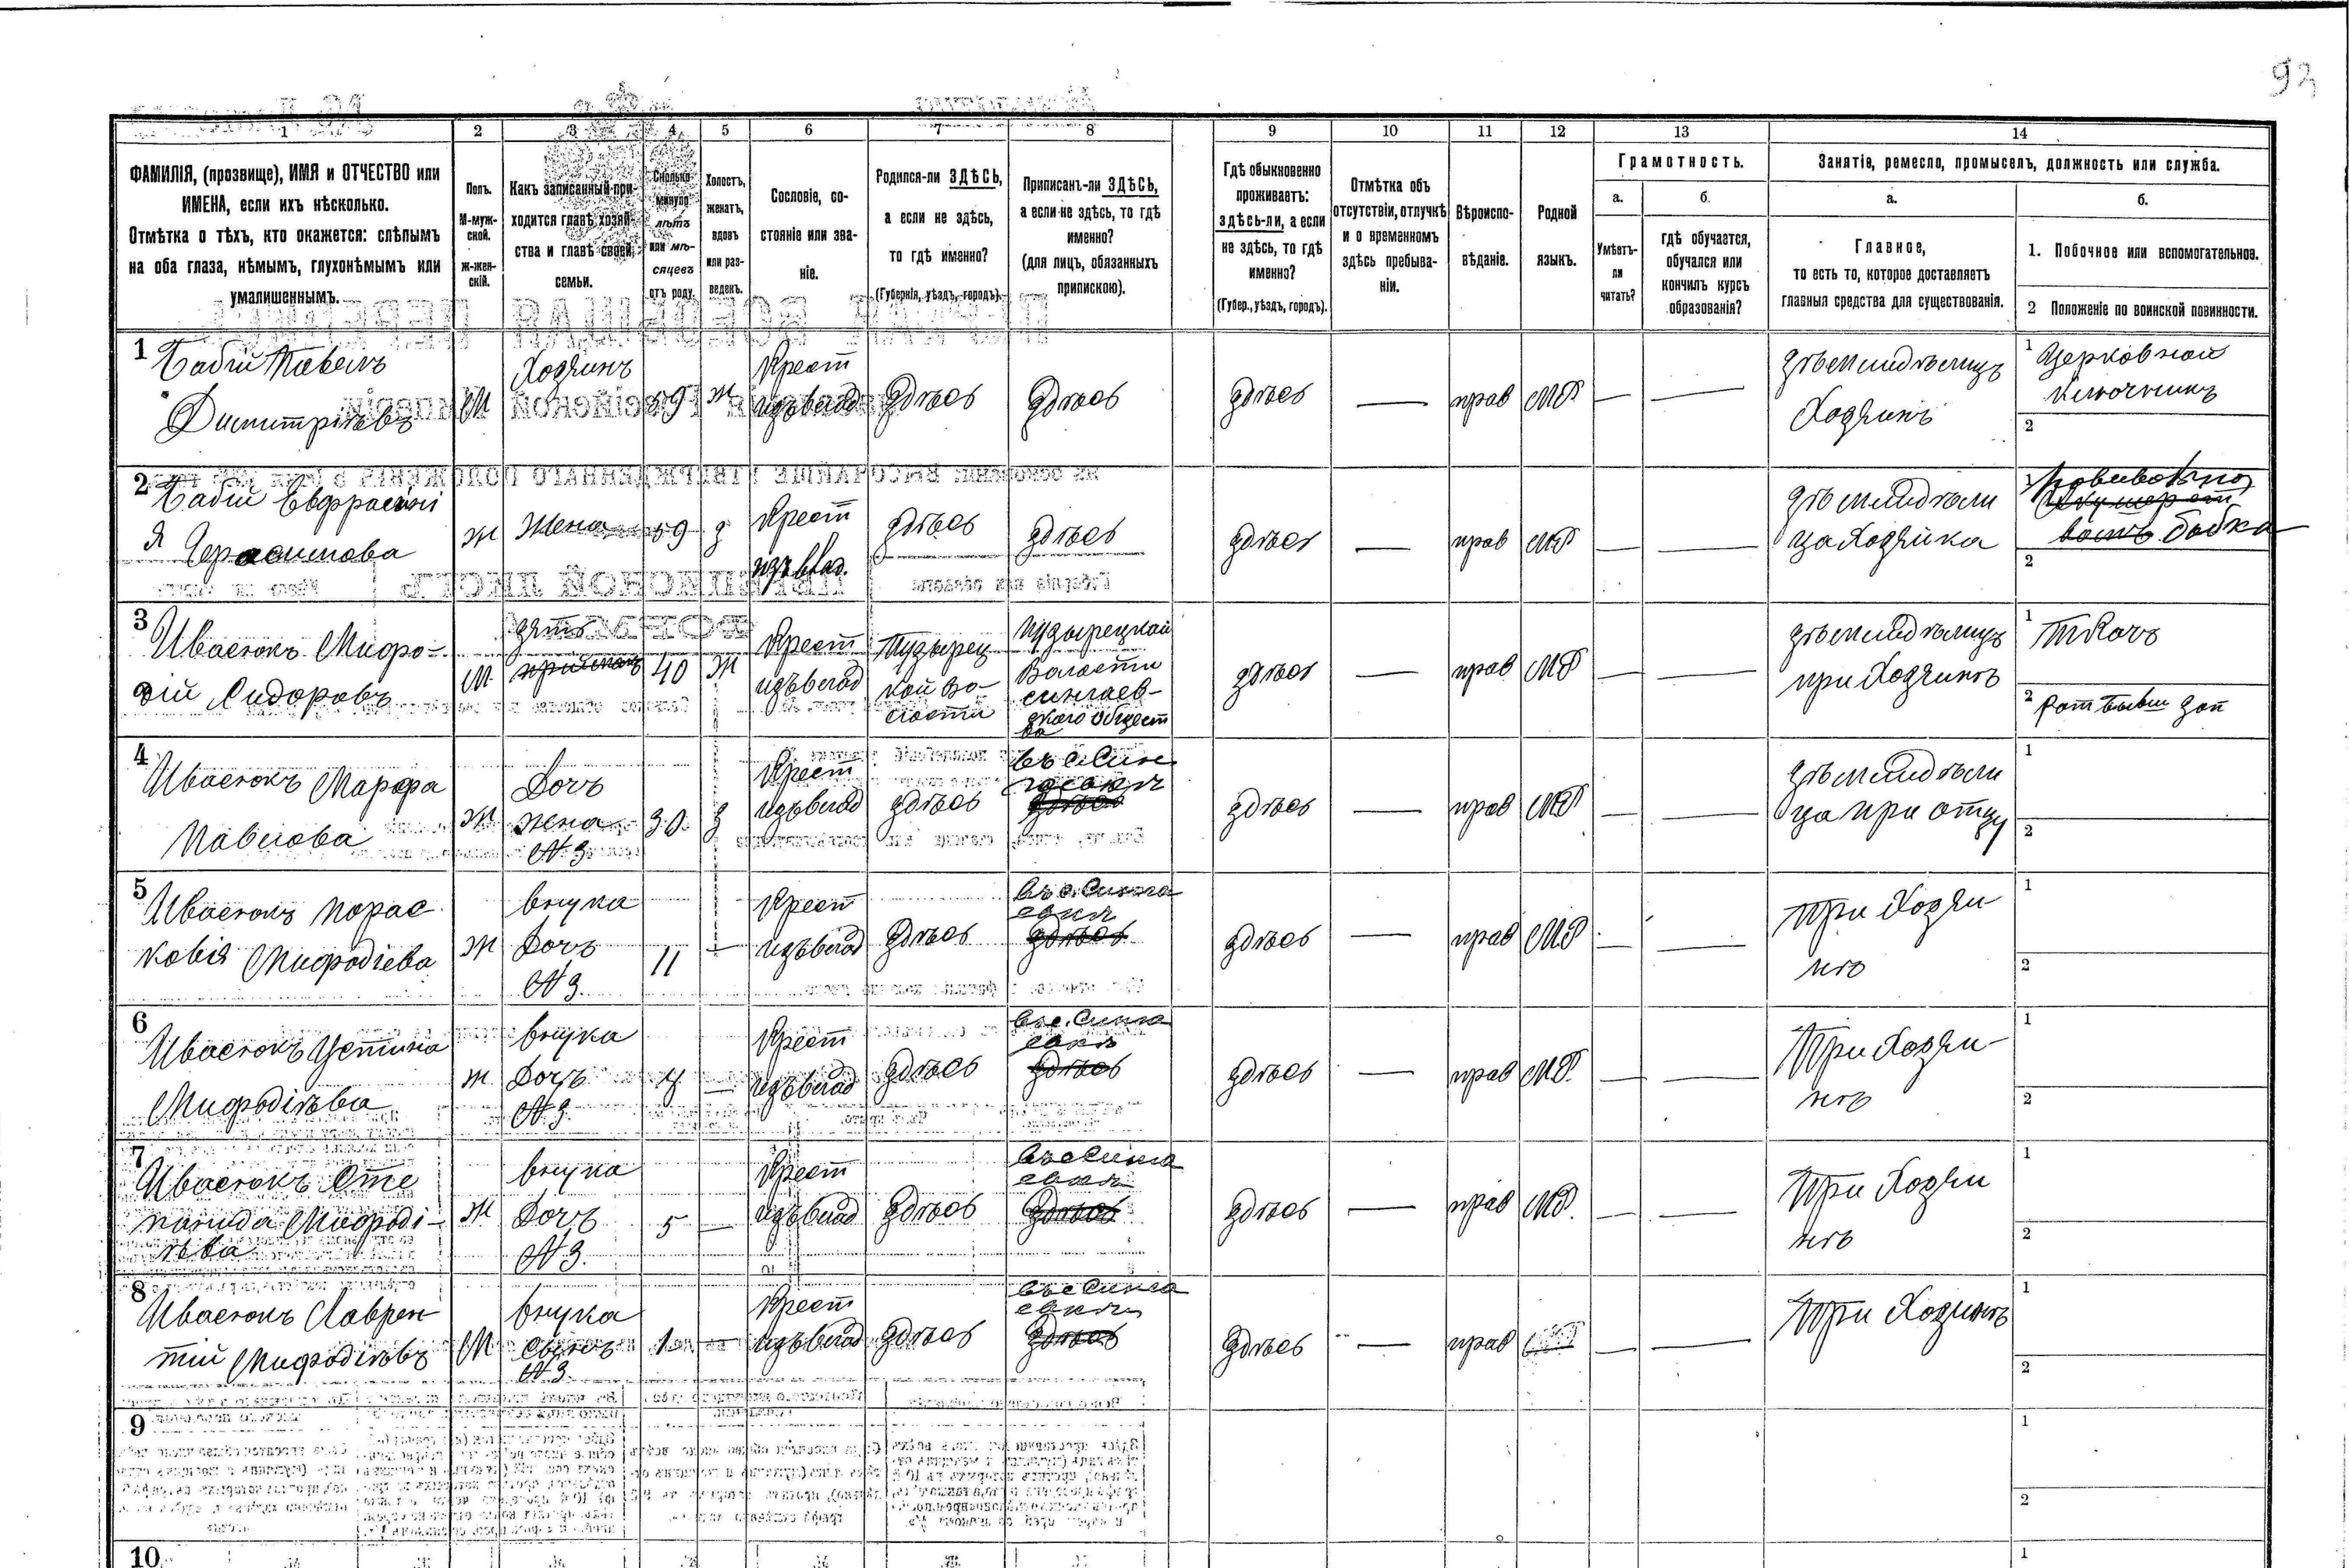 92
1 2 3 4 5 6 7 8 9 10 11 12 13 14
ФАМИЛІЯ, (прозвище), ИМЯ и ОТЧЕСТВО или
ИМЕНА, если ихъ нѣсколько.
Отмѣтка о тѣхъ, кто окажется: слѣпымъ
на оба глаза, нѣмымъ, глухонѣмымъ или
умалишеннымъ.
Полъ.
М-муж-
ской.
ж-жен-
скій.
Какъ записанный при-
ходится главѣ хозяй-
ства и главѣ своей
семьи.
Сколько
минуло
лѣтъ
или мѣ-
сяцевъ
отъ роду.
Холостъ,
женатъ,
вдовъ
или раз-
веденъ.
Сословіе, со-
стояніе или зва-
ніе.
Родился-ли ЗДѢСЬ,
а если не здѣсь,
то гдѣ именно?
(Губернія, уѣздъ, городъ).
Приписанъ-ли ЗДѢСЬ,
а если не здѣсь, то гдѣ
именно?
(для лицъ, обязанныхъ
припискою).
Гдѣ обыкновенно
проживаетъ:
здѣсь-ли, а если
не здѣсь, то гдѣ
именно?
(Губер., уѣздъ, городъ).
Отмѣтка объ
отсутствіи, отлучкѣ
и о временномъ
здѣсь пребыва-
ніи.
Вѣроиспо-
вѣданіе.
Родной
языкъ.
Грамотность.
а.
Умѣетъ-
ли
читать?
б.
гдѣ обучается,
обучался или
кончилъ курсъ
образованія?
Занятіе, ремесло, промыселъ, должность или служба.
а.
Главное,
то есть то, которое доставляетъ
главныя средства для существованія.
б.
1. Побочное или вспомогательное.
2 Положеніе по воинской повинности.
1
Бабій Павелъ
Димитріевъ
М
Хозяинъ
59
ж
Крест
изъ влад
здѣсь
здѣсь
здѣсь
—
прав
МР
—
—
земледѣлецъ
Хозяинъ
1 Церковной
ключникъ
2
2
Бабій Евфросині
я Герасимова
ж
Жена
59
з
Крест
изъ влад.
здѣсь
здѣсь
здѣсь
—
прав
МР
—
—
земледѣли
ца хозяйка
1 повивольно
бабка
2
3
Ивасюкъ Мифо-
дій Сидоровъ
М
зять
40
ж
Крест
изъ влад
Пузырец
кой во-
лости
Пузырецкой
Волости
сингаев-
скаго общест
ва
здѣсь
—
прав
МР
—
—
земледѣлецъ
при хозяинѣ
1 Ткачъ
2
4
Ивасюкъ Марфа
Павлова
ж
Дочь
жена
№3
30
з
Крест
изъ влад
здѣсь
въ с. Син
гаевкѣ
здѣсь
здѣсь
—
прав
МР
—
—
земледѣли
ца при отцу
1
2
5
Ивасюкъ Парас
ковія Мифодіева
ж
внука
Дочь
№3
11
—
Крест
изъ влад
здѣсь
въ с. Синга
евкѣ
здѣсь
здѣсь
—
прав
МР
—
—
При хозяи
нѣ
1
2
6
Ивасюкъ Устина
Мифодіева
ж
внука
Дочь
№3.
—
Крест
изъ влад
здѣсь
въ с. Синга
евкѣ
здѣсь
здѣсь
—
прав
МР.
—
—
При хозяи-
нѣ
1
2
7
Ивасюкъ Сте
панида Мифоді-
ѣва
ж
внука
Дочь
№3.
5
—
Крест
изъ влад
здѣсь
въ с Синга
евкѣ
здѣсь
здѣсь
—
прав
МР.
—
—
При хозяи
нѣ
1
2
8
Ивасюкъ Лаврен
тій Мифодіевъ
М
внука
Сынъ
№3.
1
—
Крест
изъ влад
здѣсь
въ с Синга
евкѣ
здѣсь
здѣсь
—
прав
—
—
При хозяинѣ
1
2
9
1
2
10
1